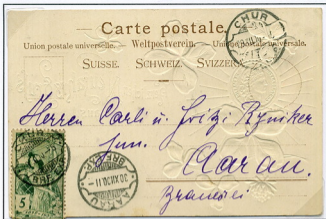 Carte postale.
Union postale universelle. Weltpostverein. Unione postale universale.
SUISSE. SCHWEIZ. SVIZZERA.
CHUR
Herren Carli u. Fritz Rysniker
jun.
Aarau.
5
AARAU
30.XII.00.11